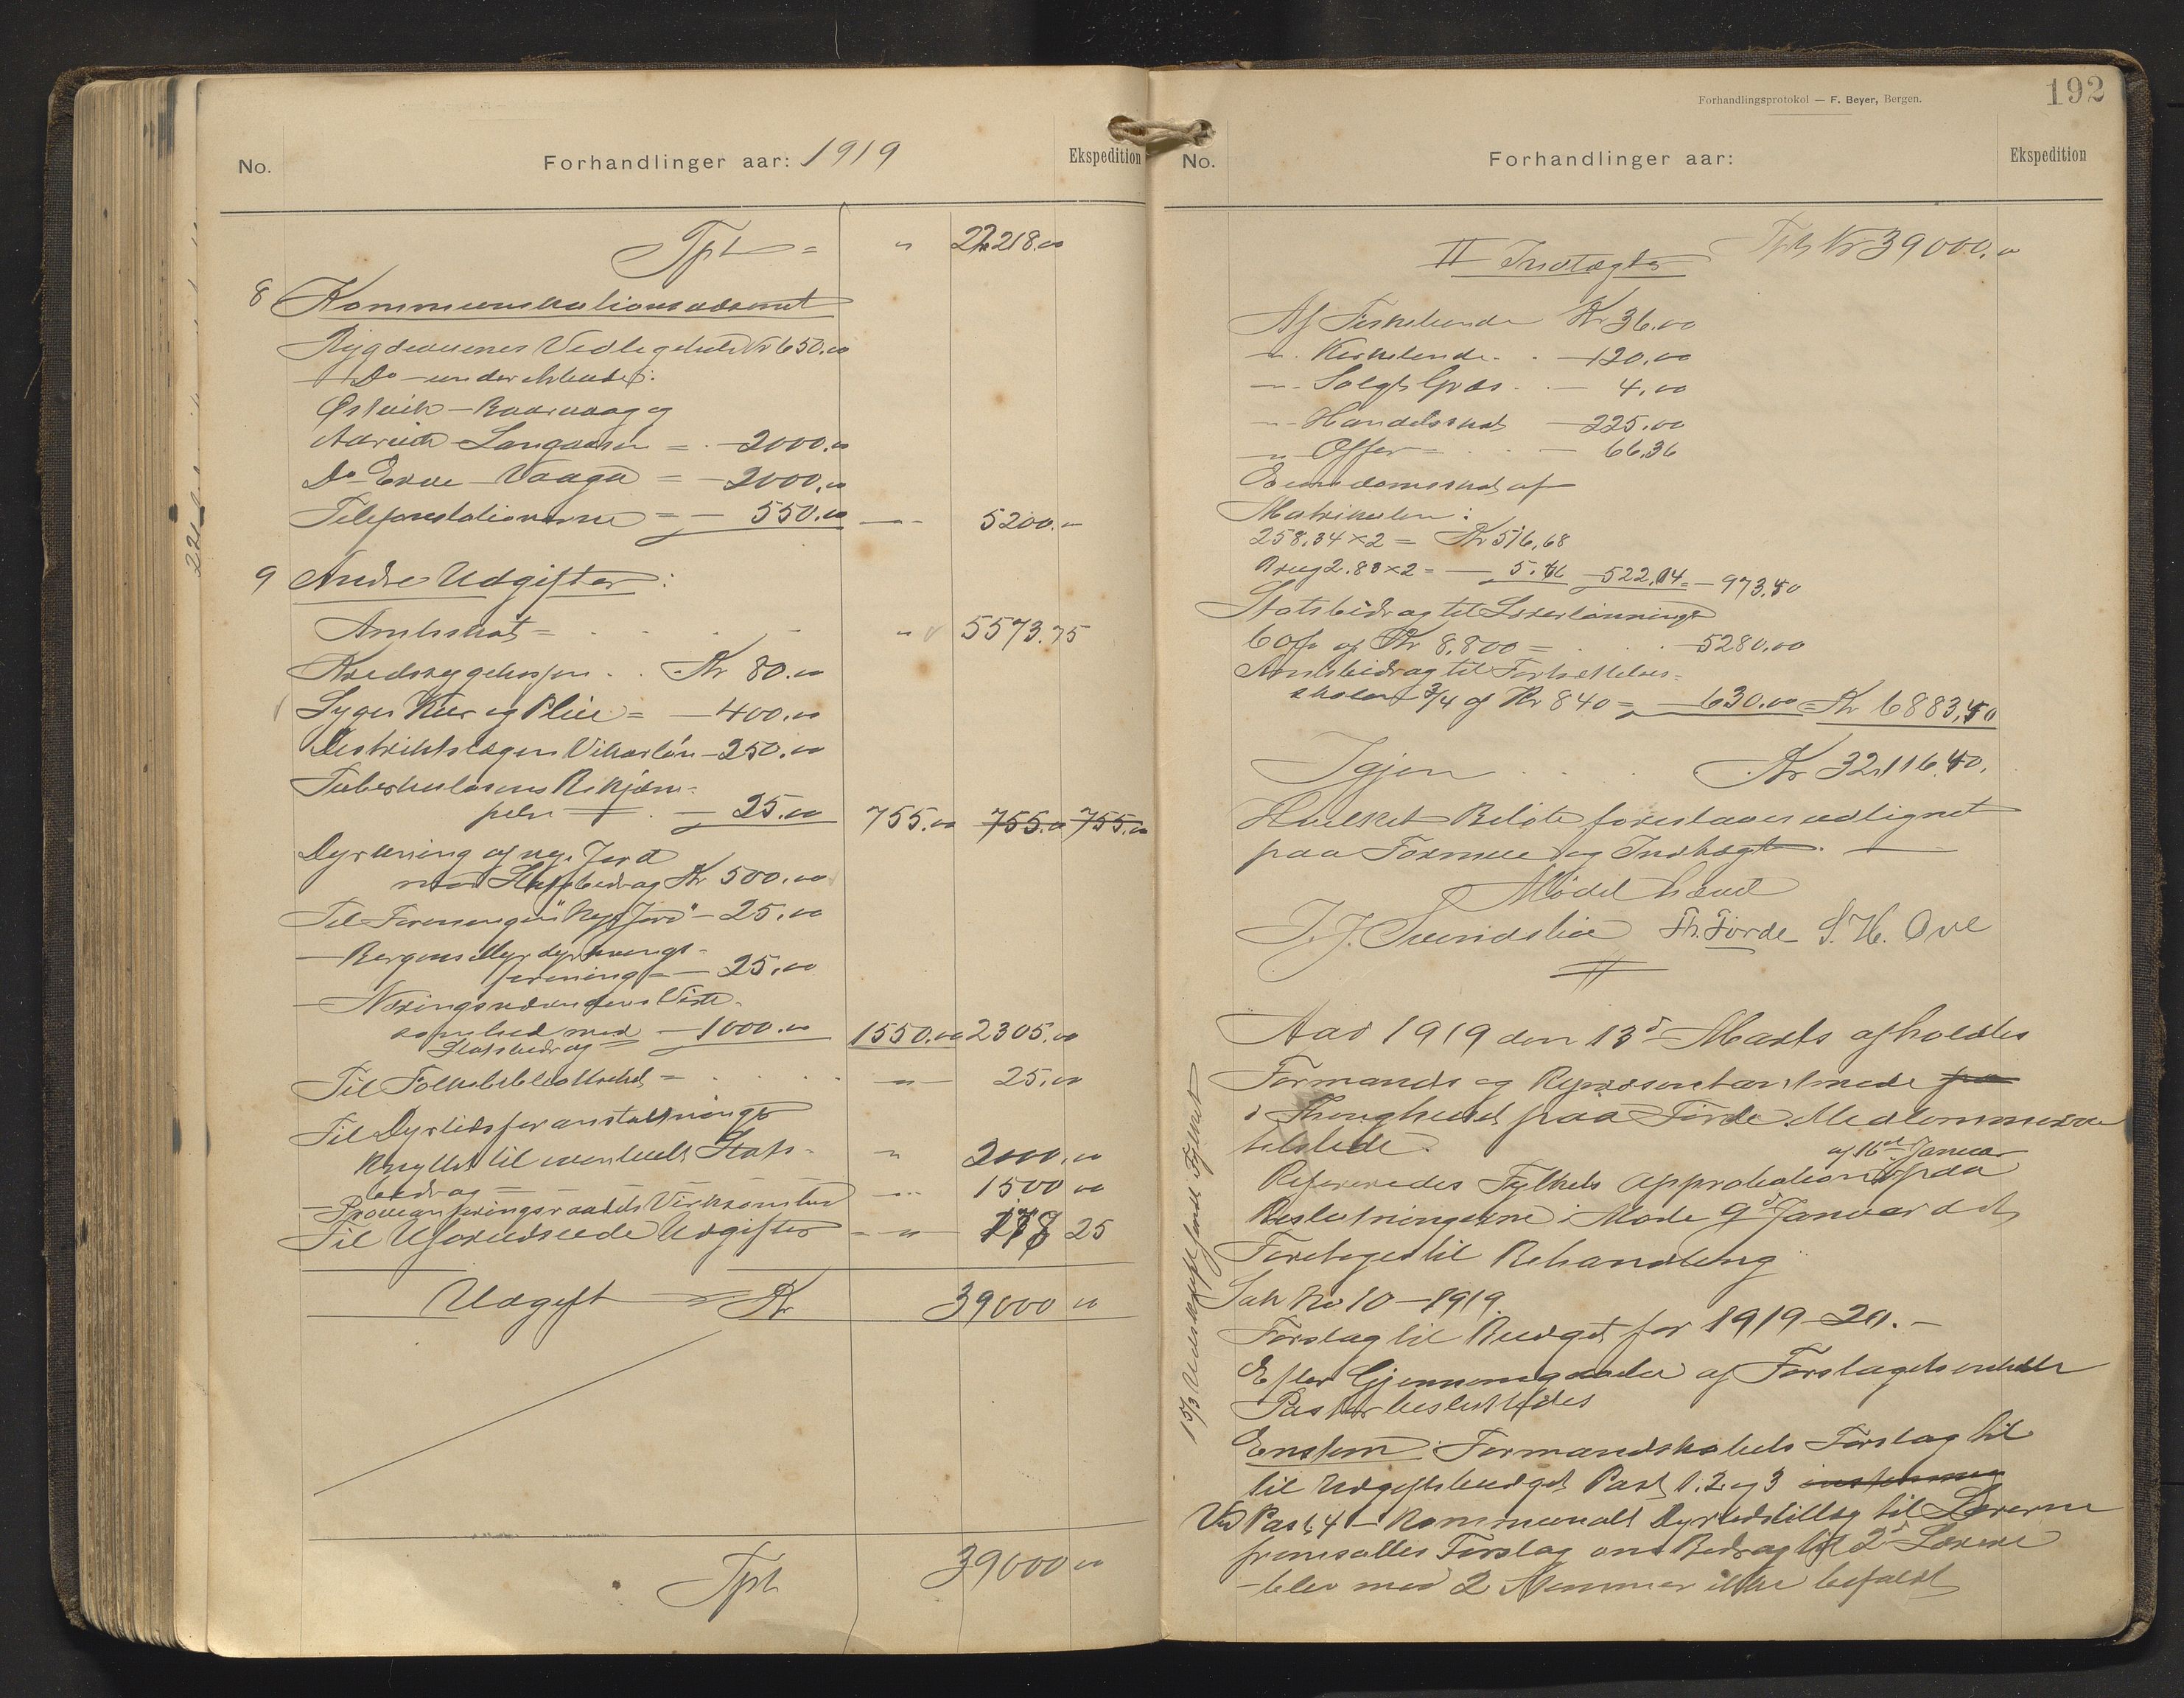 No.
Forhandlinger aar: 1919
Ekspedition
Tpt = " 22218.00
8 Kommunikationsvæsenet
Bygdeveienes Vedligehold Kr 650.00
Do under Arbeide:
Østvik - Baaravaag og
- Langaasen = - 2000.00
Do Erve - Vaage = - 2000.00
Telefonstationerne = - 550.00 - " - 5200.-
9 Andre Udgifter:
Amtsskat = " 5573.75
Kredssygekassen . . Kr 80.00
Syges Kur og Pleie = - 400.00
Distriktslægens Vikarløn - 250.00
Tuberkulosens Bekjæm-
pelse = - 25.00 755.00 755.00 755.00
Dyrkning af nye Jord
mod Statsbidrag Kr 500.00
Til Foreningen "Nye Jord" - 25.00
- Bergens Myrdyrknings-
forening = - 25.00
- Næringsnævndens Virk-
somhed med - 1000.00 1550.00 2305.00
Statsbidrag =
Til Folkebibliotheket = . . . - " - 25.00
Til Dyrtidsforanstaltninger
knyttet til eventuelt Stats- " 2000.00
bidrag =
- Provianteringsraadets Virksomhed - " - 1500 00
Til Uforudseede Udgifter - " - 178 25
Udgift = Kr 39000 00
Tpt 39000 00
Forhandlingsprotokol — F. Beyer, Bergen.
192
No.
Forhandlinger aar:
Ekspedition
II Indtægter Tpt Kr 39000.00
Af Fiskelende Kr 36.00
- " - Kirkelende . . - 120.00
- " - Solgt Græs . . - 4.00
- " - Handelsskat - 225.00
- " - Offer = . . - 66.36
Eiendomsskat af
Matrikulen:
258.34 x 2 = Kr 516.68
Brug 2.83 x 2 = - 5.76 - 522.14 = - 973.50
Statsbidrag til Lærerlønninger
60% af Kr 8.800 = . . . - 5280.00
Amtsbidrag til Fortsættelses-
skolen 3/4 af Kr 840 = - 630.00 = Kr 6883.50
Igjen . . . Kr 32.116.50.
Hvilket Beløb foreslaaes udlignet
paa Formue og Indtægt. —
Mødet hævet
J. J. Svendslie Th. Førde S. H. Ove
Aar 1919 den 13de Marts afholdtes
Formands og Repræsentantmøde paa
i Thinghuset paa Førde. Medlemmerne
tilstede.
af 16de Januar
Refereredes Fylkets Approbation paa
Beslutningerne i Møde 9de Januar d. A.
Foretoges til Behandling
Sak No 10 - 1919.
Forslag til Budget for 1919-20. -
Efter Gjennemgaaelse af Forslagets enkelte
Poster besluttedes
Enstem: Formandskabets Forslag til
til Udgiftsbudget Post 1. 2 og 3
Ved Post 4 - Kommunalt Dyrtidstillæg til Lærerne
fremsattes Forslag om Bidrag til 2de Lærere
- blev mod 2 Stemmer ikke bifaldt
15/3 Udskrift sendt Fylket